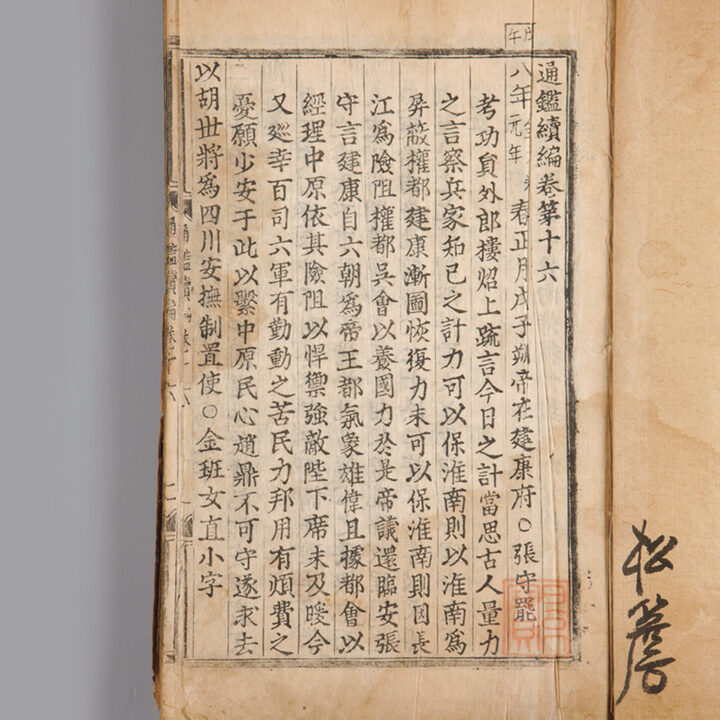 通鑑續編卷第十六
戊午
八年元年春正月戊子朔帝在建康府○張守罷
考功貟外郎樓炤上䟽言今日之計當思古人量力
之言察兵家知已之計力可以保淮南則以淮南爲
屏蔽權都建康漸圖恢復力未可以保淮南則因長
江爲險阻權都吳會以養國力於是帝議還臨安張
守言建康自六朝爲帝王都氣象雄偉且據都會以
經理中原依其險阻以悍禦強敵陛下席未及暖今
又廵幸百司六軍有勤動之苦民力邦用有煩費之
憂願少安于此以繫中原民心趙鼎不可守遂求去
以胡世將爲四川安撫制置使○金班女直小字
通鑑續編
松簷